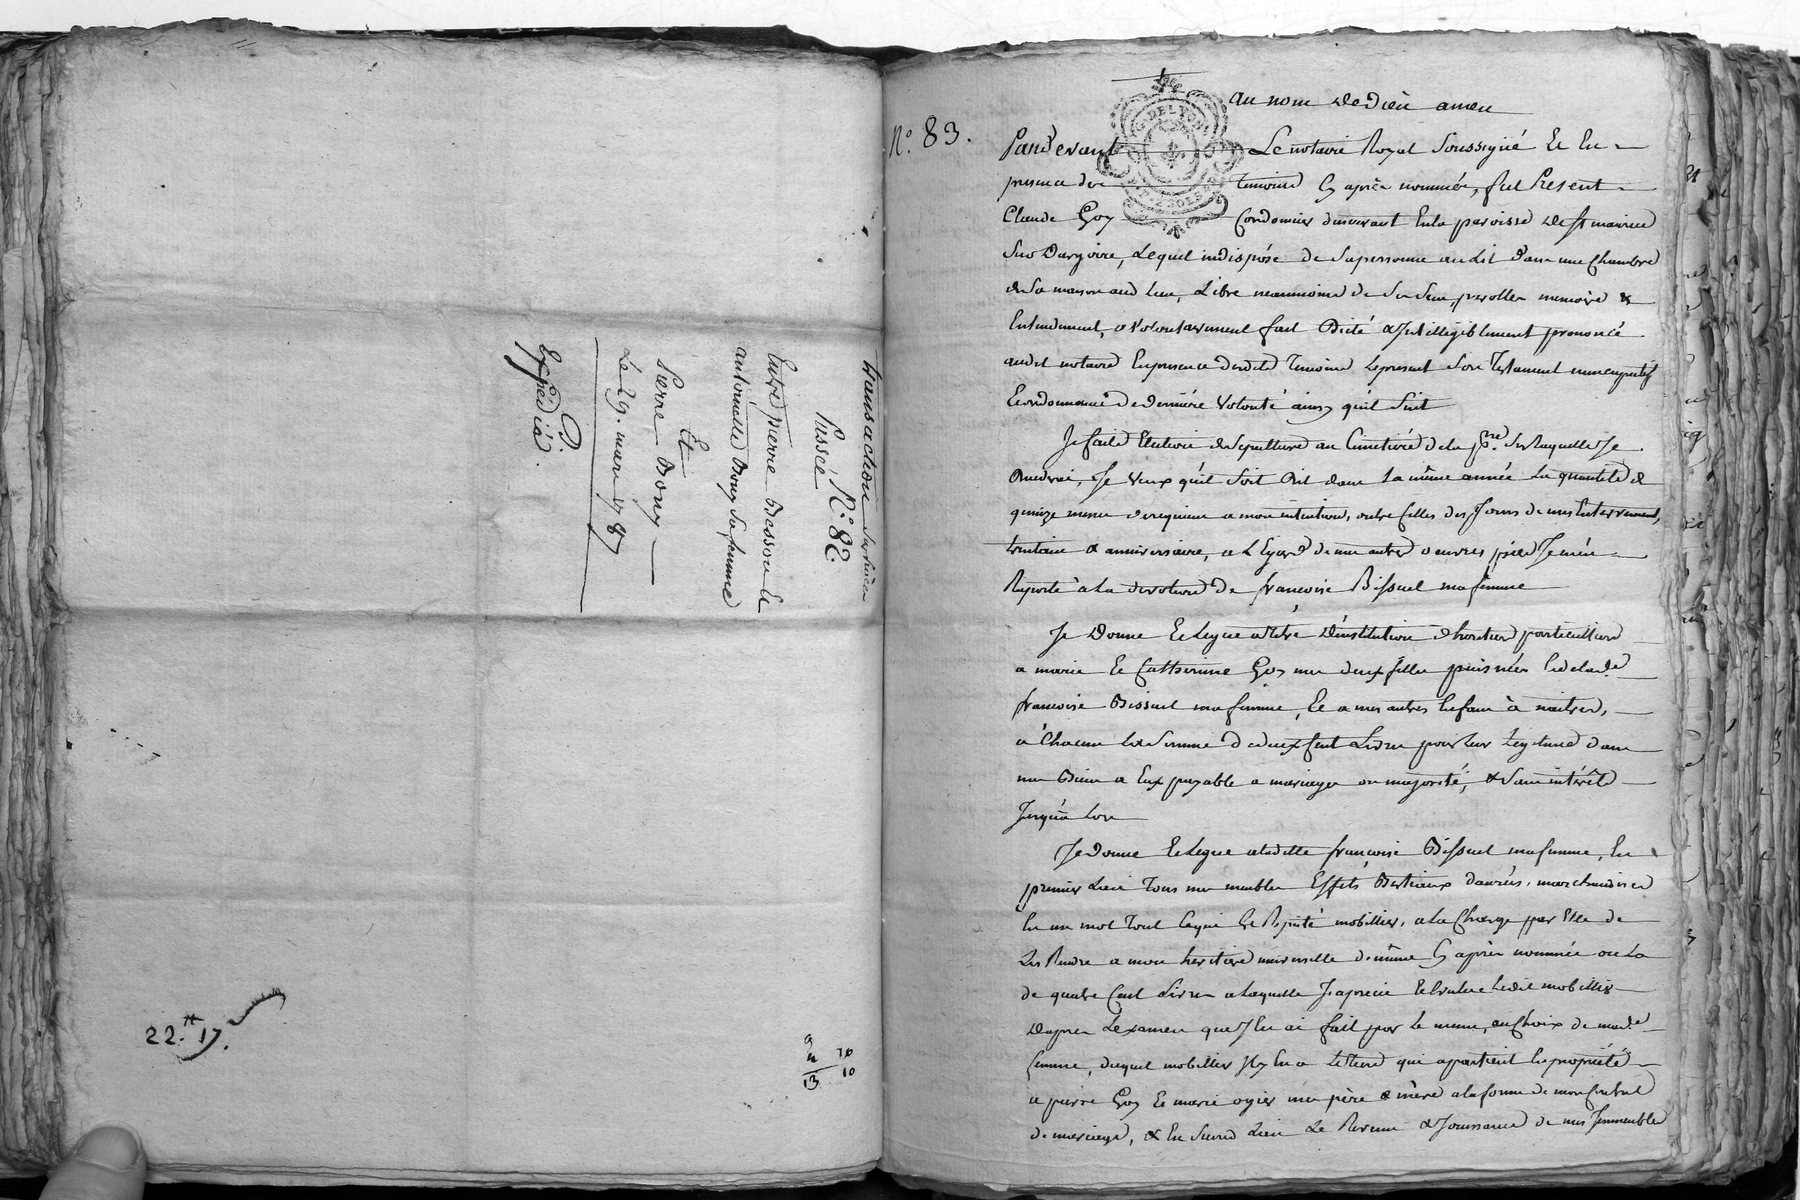 transaction
N.º 82.
Passée
Entre pierre Besson et
antoinette Bony sa femme
Et
Pierre Bony
Le 29. mars 1787
Expédié.
22.tt 17.
9
4 10
13 10
N.º 83.
G. DE LYON
au nom de Dieu amen
Pardevant Le notaire Royal Soussigné Et En
presence des temoins Cy après nommés, fut Présent
Claude Goy Cordonnier demeurant En la paroisse de St maurice
Sur Dargoire, Lequel indisposé de Sa personne au Lit dans une Chambre
de Sa maison aud lieu, Libre neanmoins de Ses Sens, parolle memoire &
Entendement, a Volontairement fait Dicté & Intelligiblement prononcé
audit notaire En presence desdits Temoins Le present Son Testament nuncupatif
Et ordonnance de derniére Volonté ainsy qu'il Suit
Je fais Election de Sepulture au Cimetiére de la p.sse Sur laquelle Je
decederai, Je Veux qu'il Soit Dit dans La même année La quantité de
quinze messes de requiem a mon intention, outre Celles des Jours de mes Enterrement,
trentaine & anniversaire, a L'Egard de mes autres oeuvres pies Je m'en
Raporte à La devotion de francoise Bissuel ma femme
Je Donne Et Legue a titre D'institution d'heritiers particulliere
a marie Et Catherine Goy mes deux filles puisnées Et de lad.e
francoise Bissuel ma femme, Et a mes autres Enfans à naitre,
a Chacun La Somme de deux Cent Livres pour leur Legitime dans
mes Biens a Eux payable a mariage ou majorité, & Sans intérêts
Jusqu'a Lors
Je Donne Et Legue a laditte francoise Bissuel ma femme, En
premier Lieu Tous mes meubles Effets Bestiaux Danrées, marchandises
En un mot Tout Ce qui Est Réputé mobillier, a La Charge par Elle de
Les Rendre a mon heritiere universelle de même Cy après nommée ou La
de quatre Cent Livres a Laquelle J'aprecie Et Evalue Ledit mobillier
D'apres L'examen que J'En ai fait par Le menu, au Choix de mad.e
femme, duquel mobillier Il y En a qui apartient En propriété
a pierre Goy Et marie ogier mes père & mère a la forme de mon Contrat
de mariage, & En Second Lieu Le Revenu & Jouissance de mes Immeubles